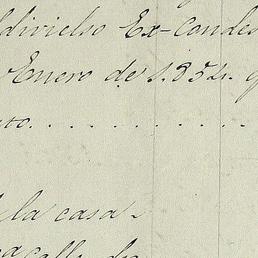 divielso Ex-Condes
Enero de 1.854. q
to. . . . . . . . . . .
la casa
calle de